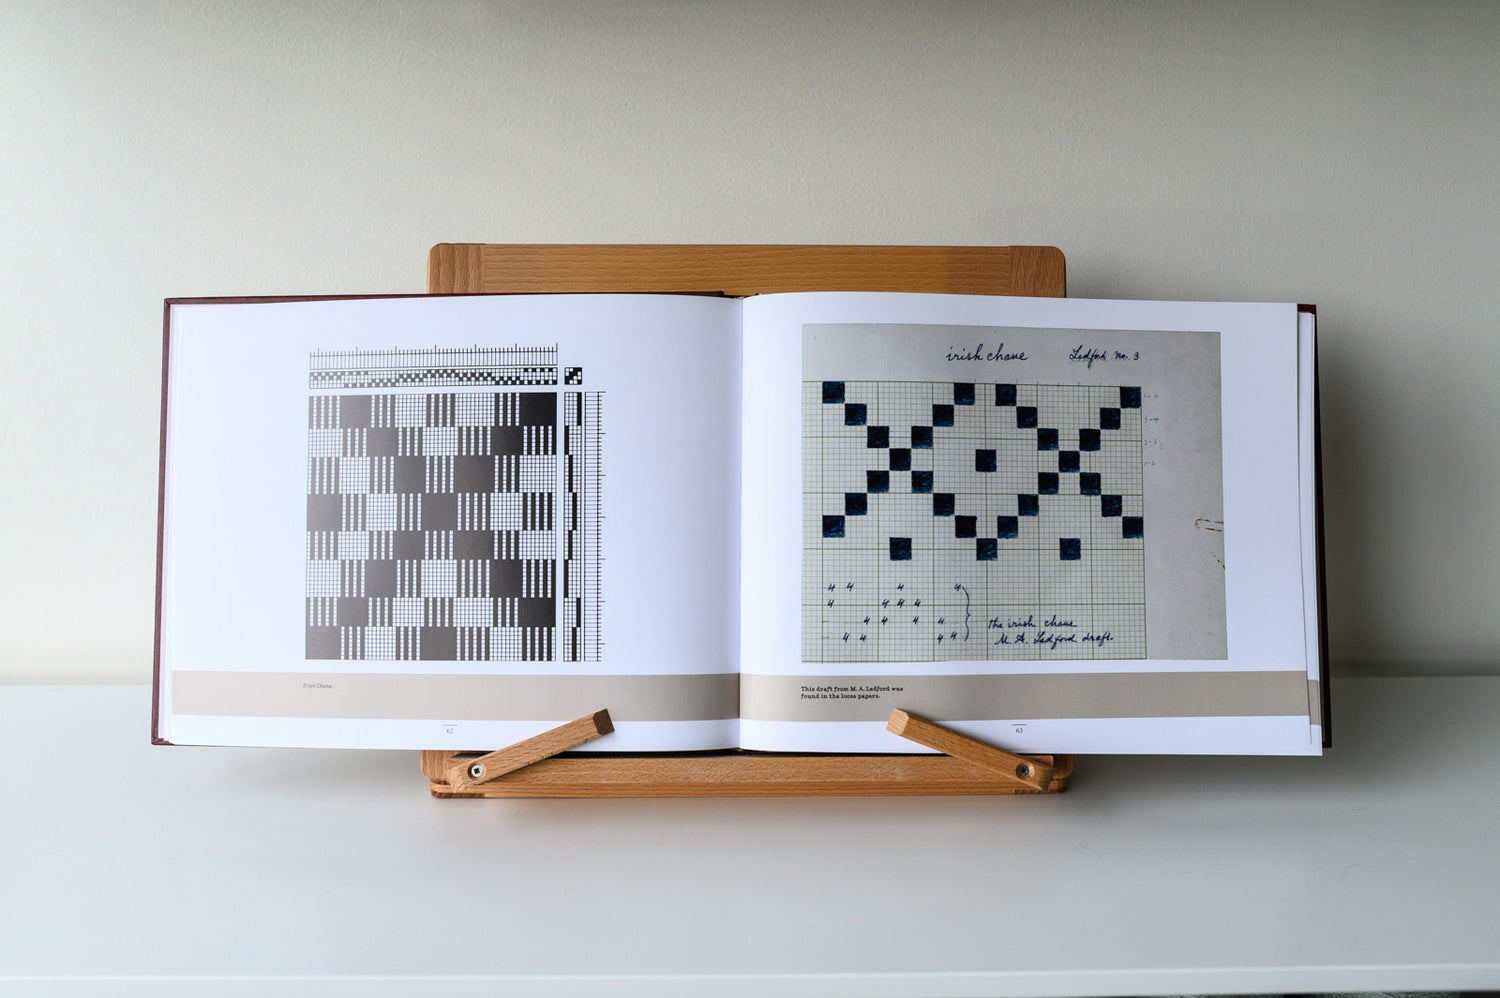 Irish Chane.
62
irish chane
Ledford no. 3
4 4 4 4
4 4 4 4
4 4 4 4
4 4 4 4
the irish chane
M. A. Ledford draft.
This draft from M. A. Ledford was
found in the loose papers.
63